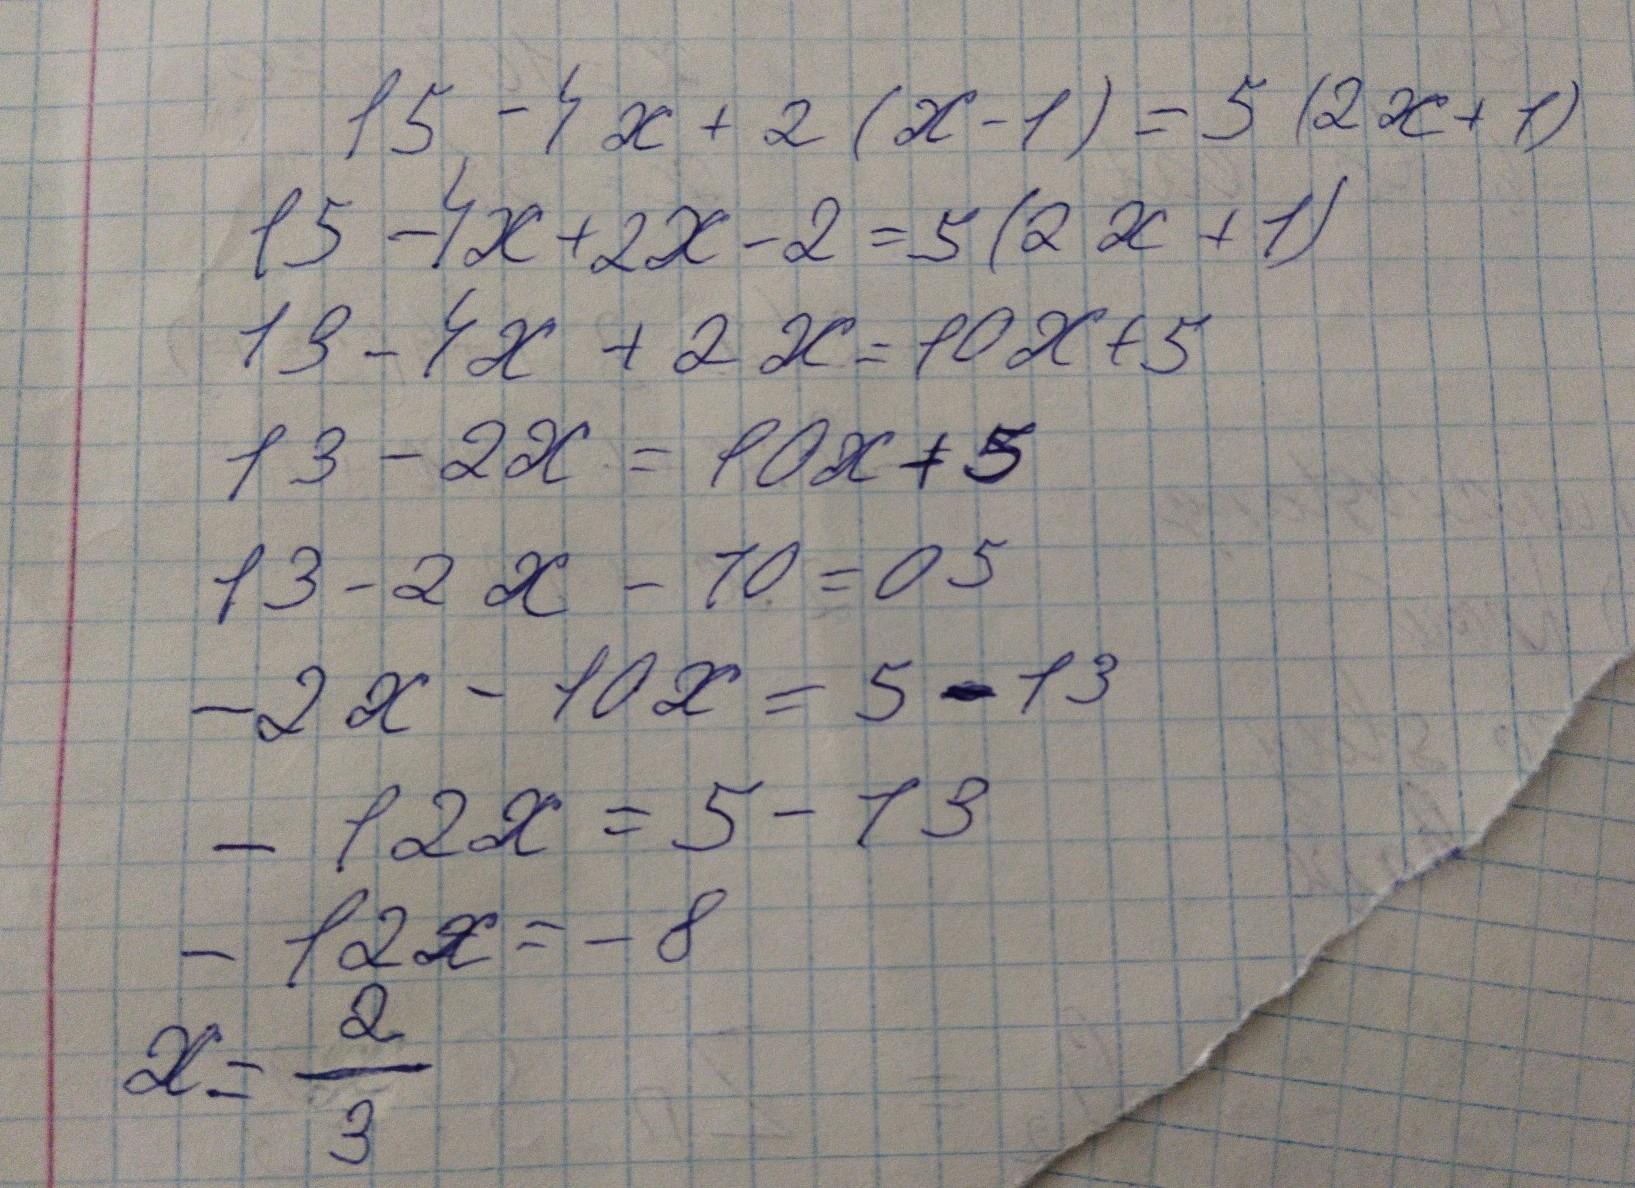 15 - 4x + 2 (x - 1) = 5 (2x + 1)
15 - 4x + 2x - 2 = 5 (2x + 1)
13 - 4x + 2x = 10x + 5
13 - 2x = 10x + 5
13 - 2x - 10 = 05
-2x - 10x = 5 - 13
- 12x = 5 - 13
- 12x = - 8
x = 2/3